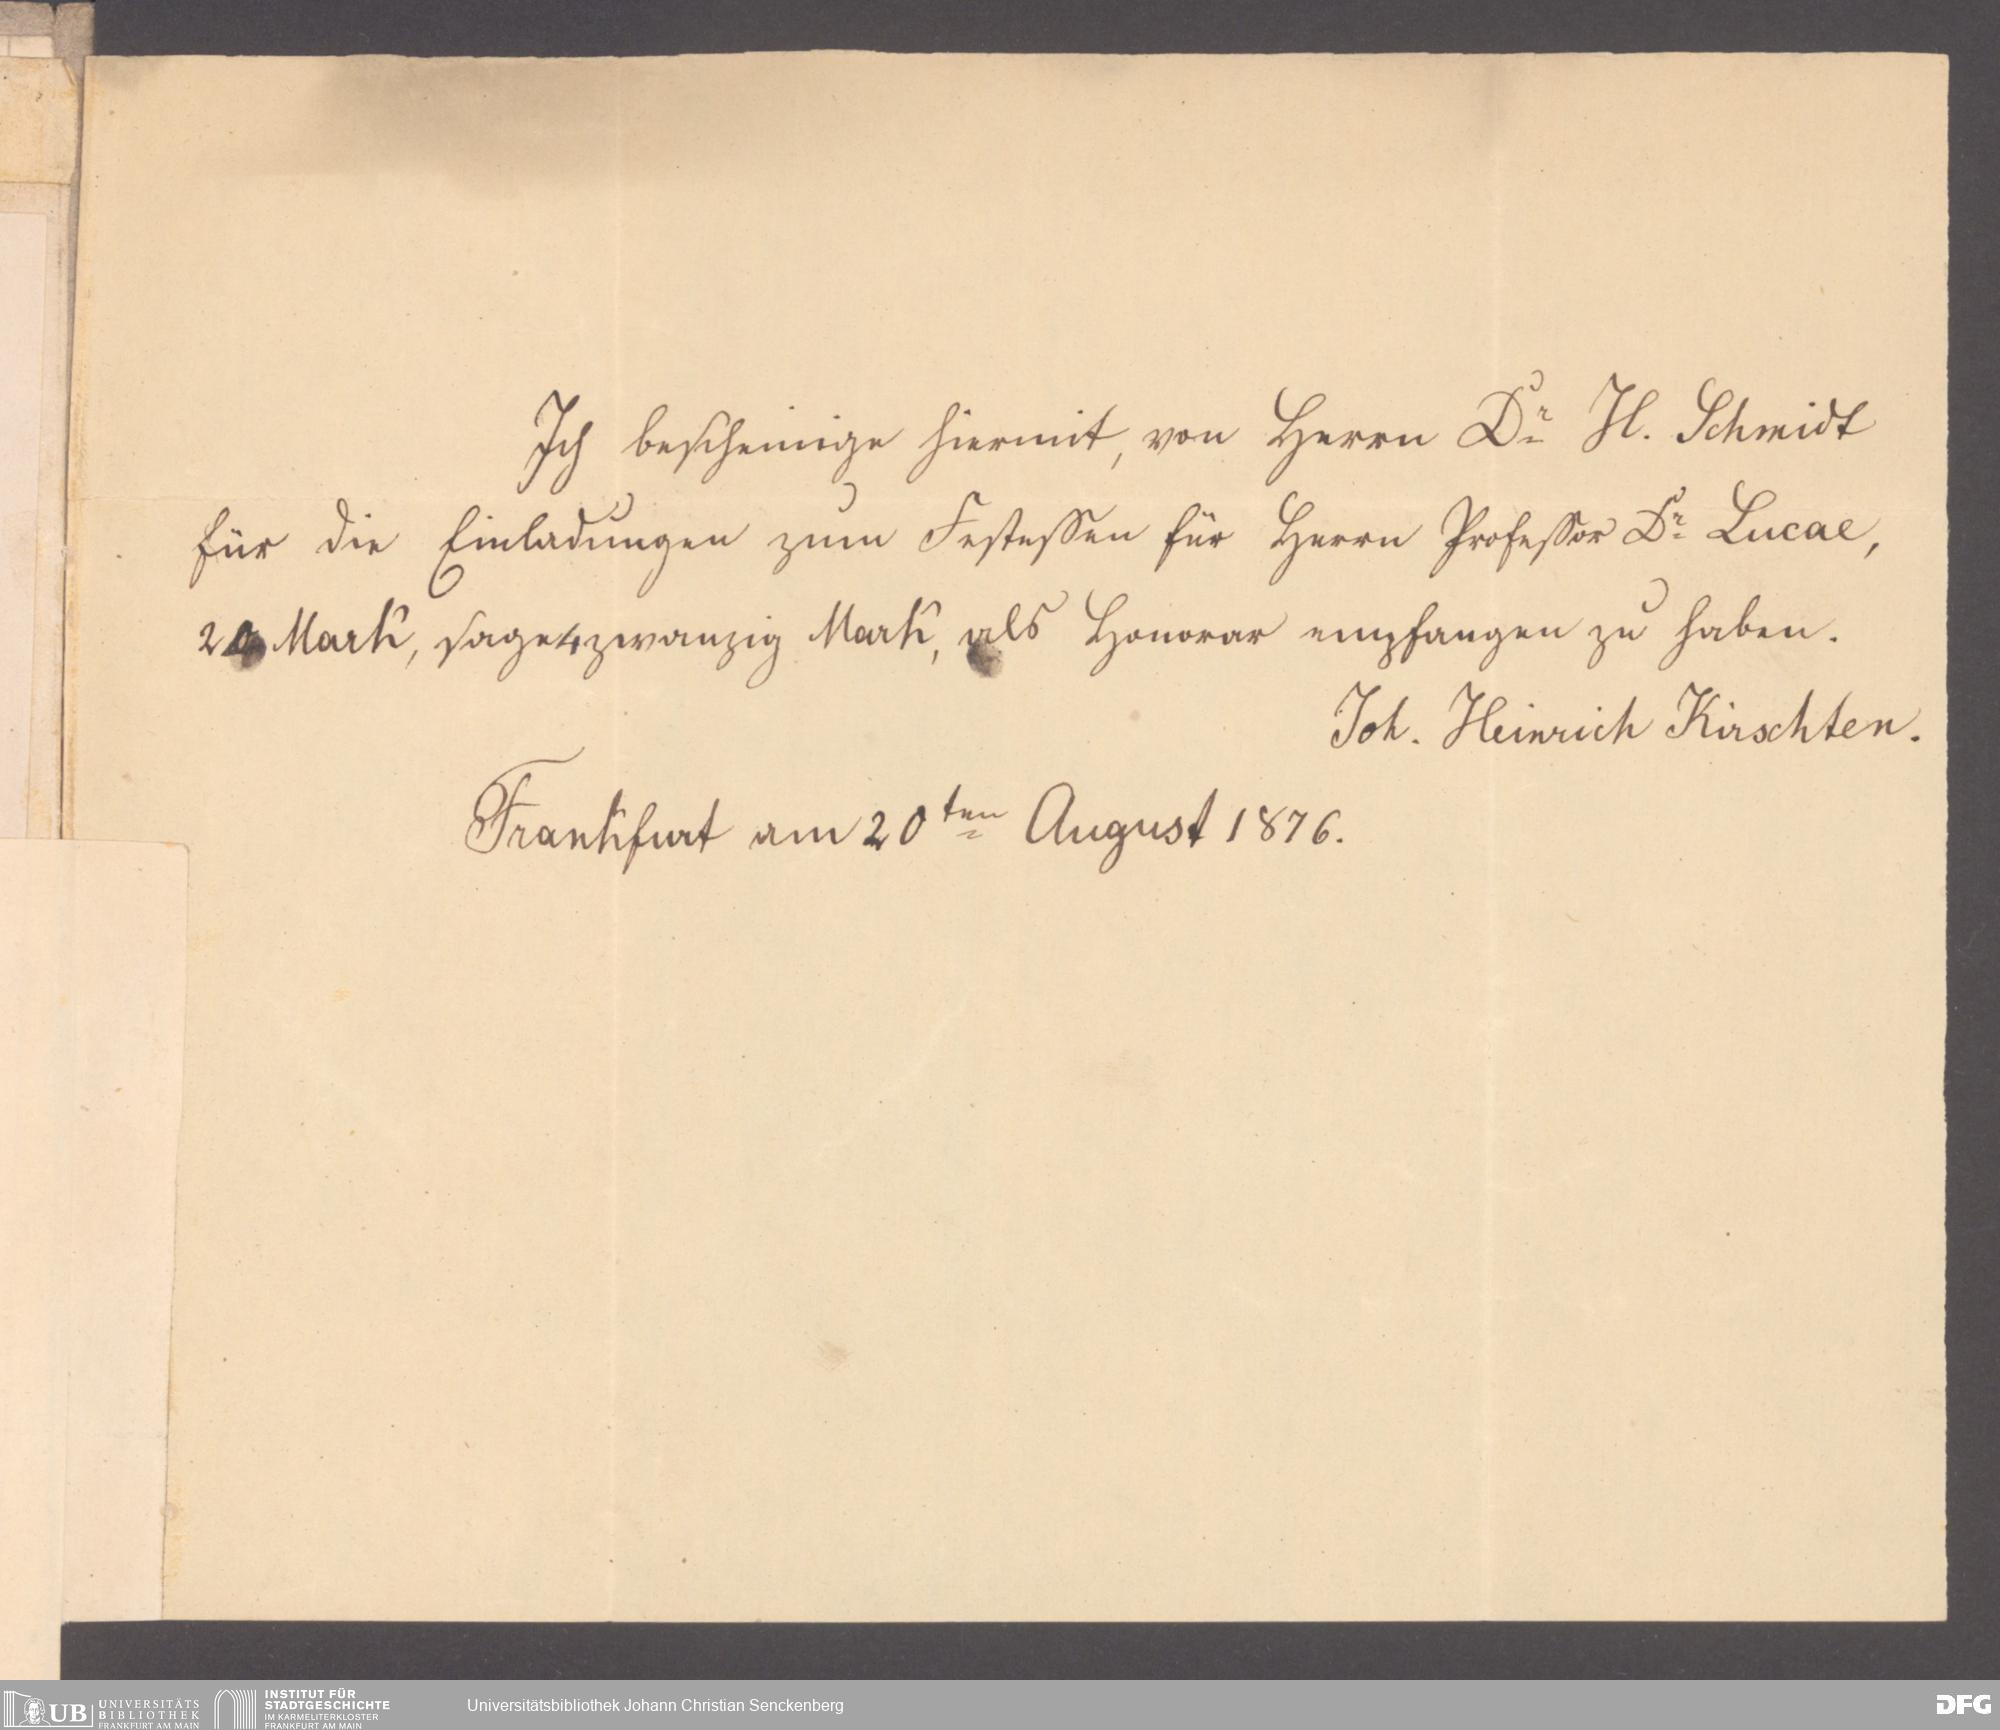 Ich bescheinige hiermit, von Herrn Dr H. Schmidt
für die Einladungen zum Festessen für Herrn Professor Dr Lucae,
20 Mark, sage zwanzig Mark, als Honorar empfangen zu haben.
Joh. Heinrich Kirschten.
Frankfurt am 20ten August 1876.
UB UNIVERSITÄTS
BIBLIOTHEK
FRANKFURT AM MAIN
INSTITUT FÜR
STADTGESCHICHTE
IM KARMELITERKLOSTER
FRANKFURT AM MAIN
Universitätsbibliothek Johann Christian Senckenberg
DFG